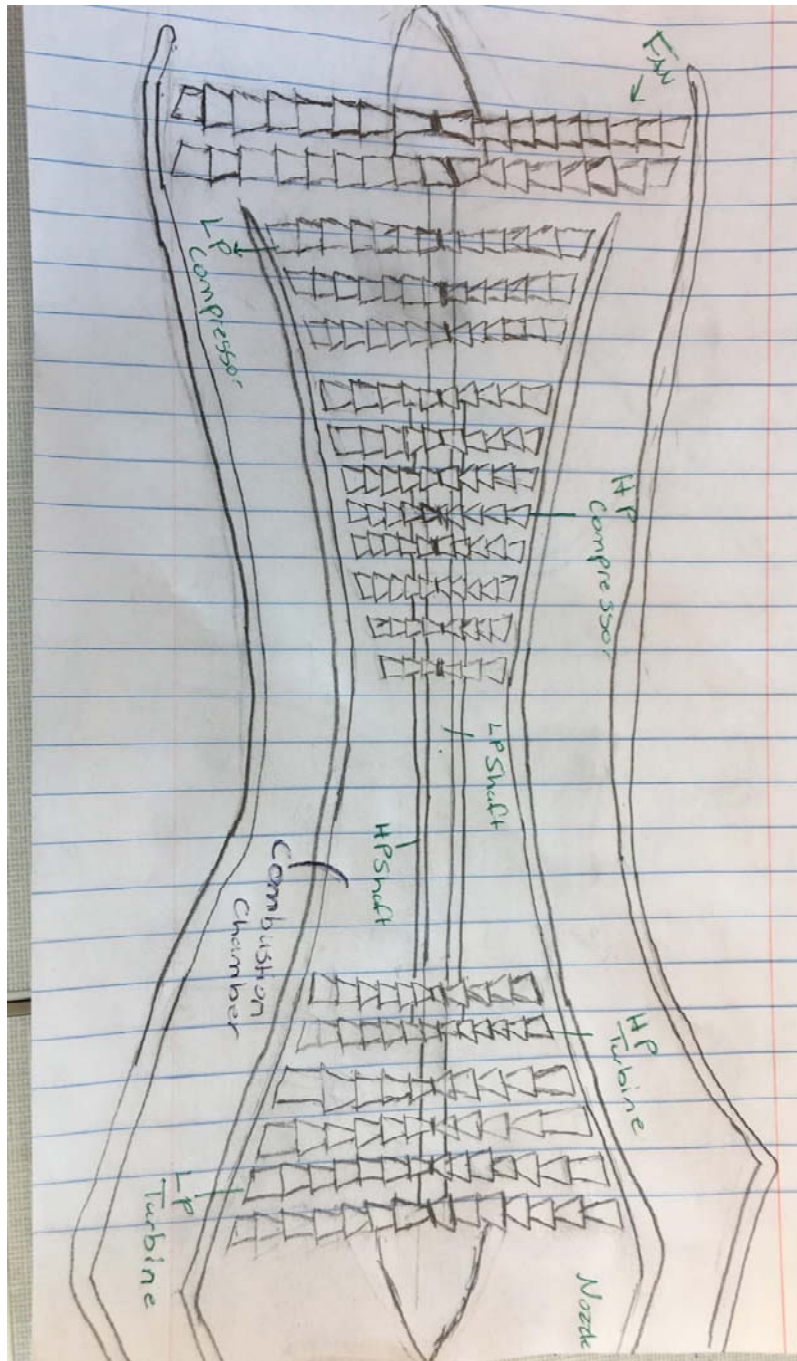 Fan
LP
Compressor
HP
Compressor
LP Shaft
HP Shaft
Combustion
Chamber
HP
Turbine
LP
Turbine
Nozzle